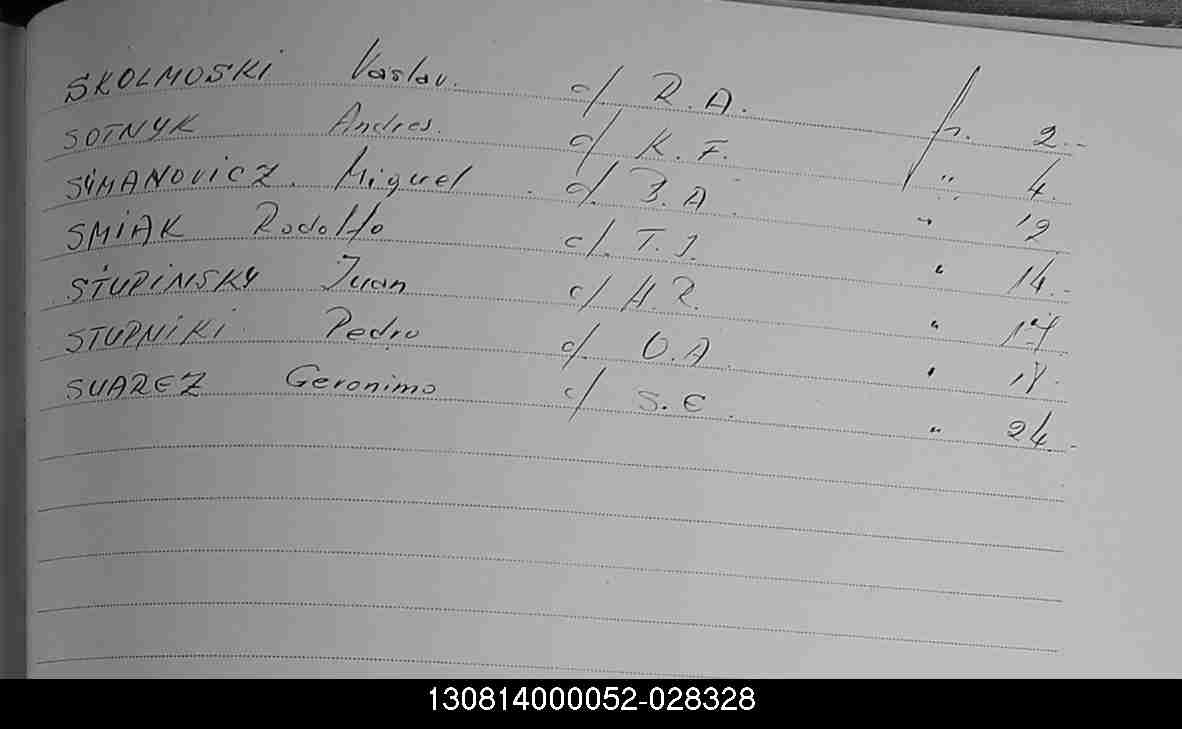 SKOLMOSKI Vaslav. c/ R.A. fr. 2.-
SOTNYK Andres. c/ K.F. " 4.
SIMANOVICZ. Miguel. c/. B.A. " 12
SMIAK Rodolfo c/. T.J. " 14.-
STUPINSKY Juan c/ H.R. " 17
STUPNIKI. Pedro c/. O.A. " 18.
SUAREZ Geronimo c/ S.E. " 24.-
130814000052-028328